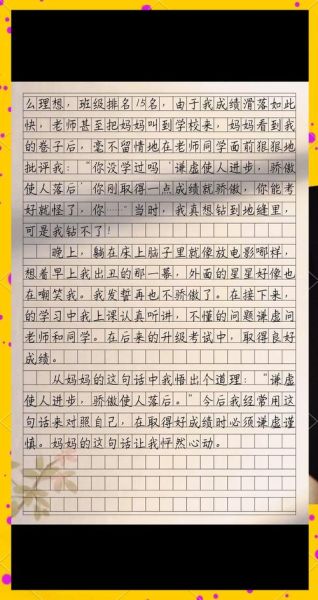 么理想，班级排名15名，由于我成绩滑落如此
快，老师甚至把妈妈叫到学校来，妈妈看到我
的卷子后，毫不留情地在老师同学面前狠狠地
批评我：“你没学过吗‘谦虚使人进步，骄傲
使人落后’你刚取得一点成绩就骄傲，你能考
好就怪了，你 ”当时，我真想钻到地缝里，
可是我钻不了！
晚上，躺在床上脑子里就像放电影哪样，
想着早上我出丑的那一幕，外面的星星好像也
在嘲笑我。我发誓再也不骄傲了。在接下来，
的学习中我上课认真听讲，不懂的问题谦虚问
老师和同学。在后来的升级考试中，取得良好
成绩。
从妈妈的这句话中我悟出个道理：“谦虚
使人进步，骄傲使人落后。”今后我经常用这
句话来对照自己，在取得好成绩时必须谦虚谨
慎。妈妈的这句话让我怦然心动。